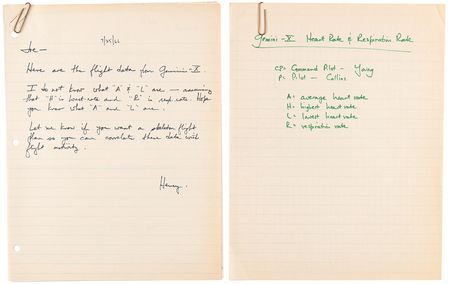 7/25/66
Joe —
Here are the flight data from Gemini-X.
I do not know what "A" & "L" are — assuming
that "H" is heart-rate and "R" is resp. rate. Hope
you know what "A" and "L" are.
Let me know if you want a skeleton flight
plan so you can correlate these data with
flight activity.
Henry.
Gemini-X Heart Rate & Respiration Rate
CP= Command Pilot - Young
P= Pilot - Collins
A= average heart rate
H= highest heart rate
L= lowest heart rate
R= respiration rate